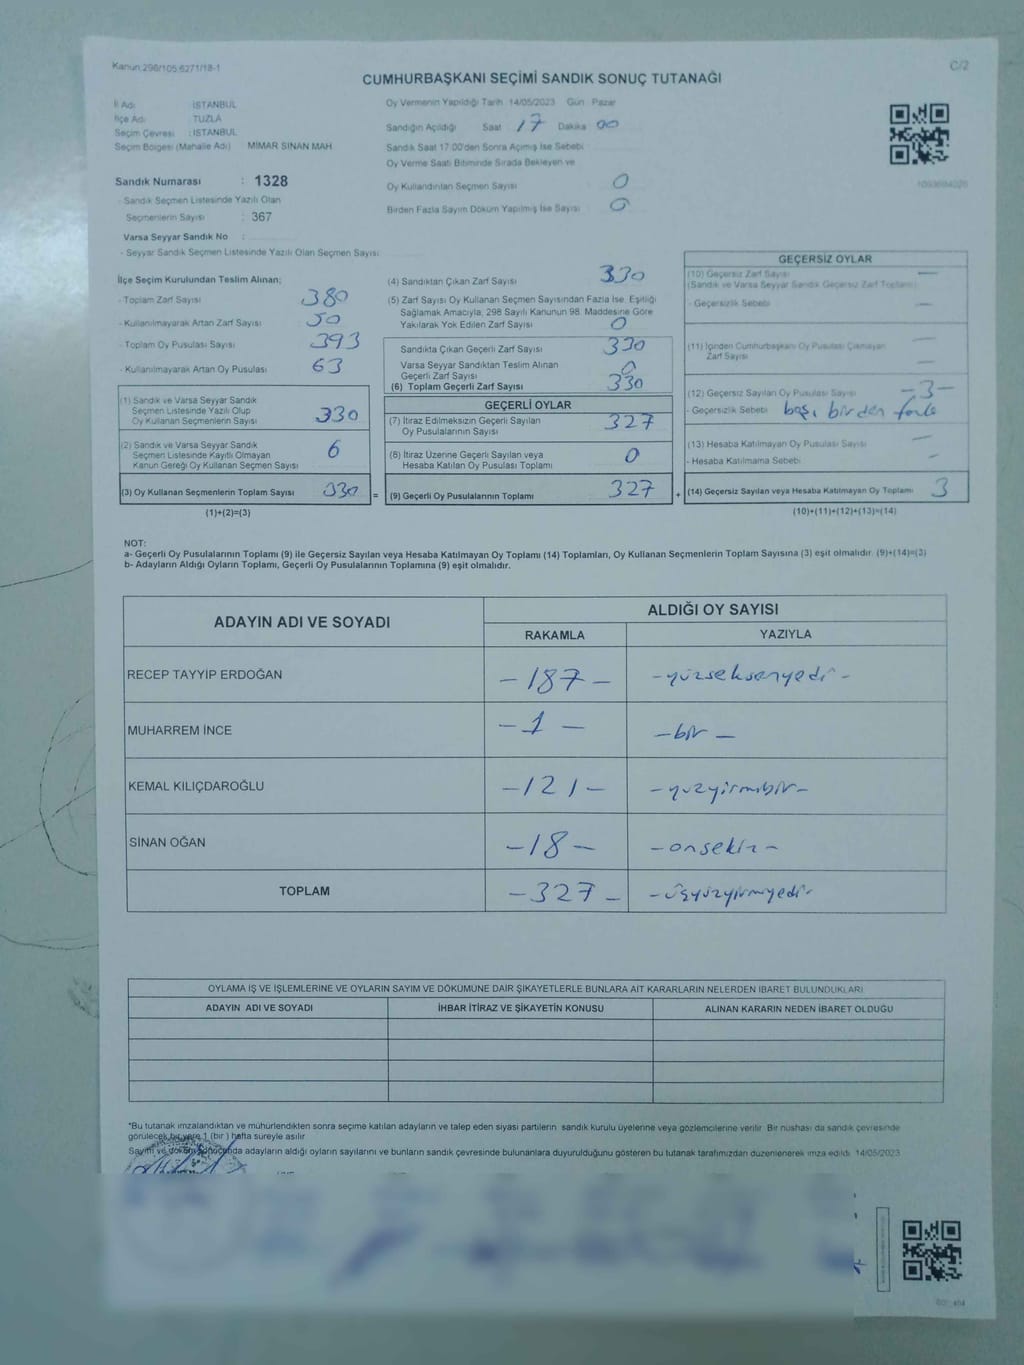 Kanun:298/105,6271/18-1
C/2
CUMHURBAŞKANI SEÇİMİ SANDIK SONUÇ TUTANAĞI
İl Adı : İSTANBUL
İlçe Adı : TUZLA
Seçim Çevresi : İSTANBUL
Seçim Bölgesi (Mahalle Adı) MİMAR SİNAN MAH.
Sandık Numarası : 1328
- Sandık Seçmen Listesinde Yazılı Olan
Seçmenlerin Sayısı : 367
Varsa Seyyar Sandık No :
- Seyyar Sandık Seçmen Listesinde Yazılı Olan Seçmen Sayısı
Oy Vermenin Yapıldığı Tarih 14/05/2023 Gün Pazar
Sandığın Açıldığı Saat 17 Dakika 00
Sandık Saat 17.00'den Sonra Açılmış İse Sebebi
Oy Verme Saati Bitiminde Sırada Bekleyen ve
Oy Kullandırılan Seçmen Sayısı 0
Birden Fazla Sayım Döküm Yapılmış İse Sayısı 0
İlçe Seçim Kurulundan Teslim Alınan;
- Toplam Zarf Sayısı 380
- Kullanılmayarak Artan Zarf Sayısı 50
- Toplam Oy Pusulası Sayısı 393
- Kullanılmayarak Artan Oy Pusulası 63
(1) Sandık ve Varsa Seyyar Sandık
Seçmen Listesinde Yazılı Olup
Oy Kullanan Seçmenlerin Sayısı 330
(2) Sandık ve Varsa Seyyar Sandık
Seçmen Listesinde Kayıtlı Olmayan
Kanun Gereği Oy Kullanan Seçmen Sayısı 6
(3) Oy Kullanan Seçmenlerin Toplam Sayısı 330 =
(1)+(2)=(3)
(4) Sandıktan Çıkan Zarf Sayısı 330
(5) Zarf Sayısı Oy Kullanan Seçmen Sayısından Fazla İse, Eşitliği
Sağlamak Amacıyla, 298 Sayılı Kanunun 98. Maddesine Göre
Yakılarak Yok Edilen Zarf Sayısı 0
Sandıkta Çıkan Geçerli Zarf Sayısı 330
Varsa Seyyar Sandıktan Teslim Alınan
Geçerli Zarf Sayısı 0
(6) Toplam Geçerli Zarf Sayısı 330
GEÇERLİ OYLAR
(7) İtiraz Edilmeksizin Geçerli Sayılan
Oy Pusulalarının Sayısı 327
(8) İtiraz Üzerine Geçerli Sayılan veya
Hesaba Katılan Oy Pusulası Toplamı 0
(9) Geçerli Oy Pusulalarının Toplamı 327 +
GEÇERSİZ OYLAR
(10) Geçersiz Zarf Sayısı —
(Sandık ve Varsa Seyyar Sandık Geçersiz Zarf Toplamı)
- Geçersizlik Sebebi —
(11) İçinden Cumhurbaşkanı Oy Pusulası Çıkmayan —
Zarf Sayısı —
(12) Geçersiz Sayılan Oy Pusulası Sayısı -3-
- Geçersizlik Sebebi boş, birden fazla
(13) Hesaba Katılmayan Oy Pusulası Sayısı —
- Hesaba Katılmama Sebebi —
(14) Geçersiz Sayılan veya Hesaba Katılmayan Oy Toplamı 3
(10)+(11)+(12)+(13)=(14)
NOT:
a- Geçerli Oy Pusulalarının Toplamı (9) ile Geçersiz Sayılan veya Hesaba Katılmayan Oy Toplamı (14) Toplamları, Oy Kullanan Seçmenlerin Toplam Sayısına (3) eşit olmalıdır. (9)+(14)=(3)
b- Adayların Aldığı Oyların Toplamı, Geçerli Oy Pusulalarının Toplamına (9) eşit olmalıdır.
ADAYIN ADI VE SOYADI
ALDIĞI OY SAYISI
RAKAMLA YAZIYLA
RECEP TAYYİP ERDOĞAN -187- -yüzseksenyedi-
MUHARREM İNCE -1- -bir-
KEMAL KILIÇDAROĞLU -121- -yüzyirmibir-
SİNAN OĞAN -18- -onsekiz-
TOPLAM -327- -üçyüzyirmiyedi-
OYLAMA İŞ VE İŞLEMLERİNE VE OYLARIN SAYIM VE DÖKÜMÜNE DAİR ŞİKAYETLERLE BUNLARA AİT KARARLARIN NELERDEN İBARET BULUNDUKLARI
ADAYIN ADI VE SOYADI İHBAR İTİRAZ VE ŞİKAYETİN KONUSU ALINAN KARARIN NEDEN İBARET OLDUĞU
*Bu tutanak imzalandıktan ve mühürlendikten sonra seçime katılan adayların ve talep eden siyasi partilerin sandık kurulu üyelerine veya gözlemcilerine verilir. Bir nüshası da sandık çevresinde
görülecek bir yere 1 (bir) hafta süreyle asılır.
Sayım ve döküm sonucunda adayların aldığı oyların sayılarını ve bunların sandık çevresinde bulunanlara duyurulduğunu gösteren bu tutanak tarafımızdan düzenlenerek imza edildi. 14/05/2023